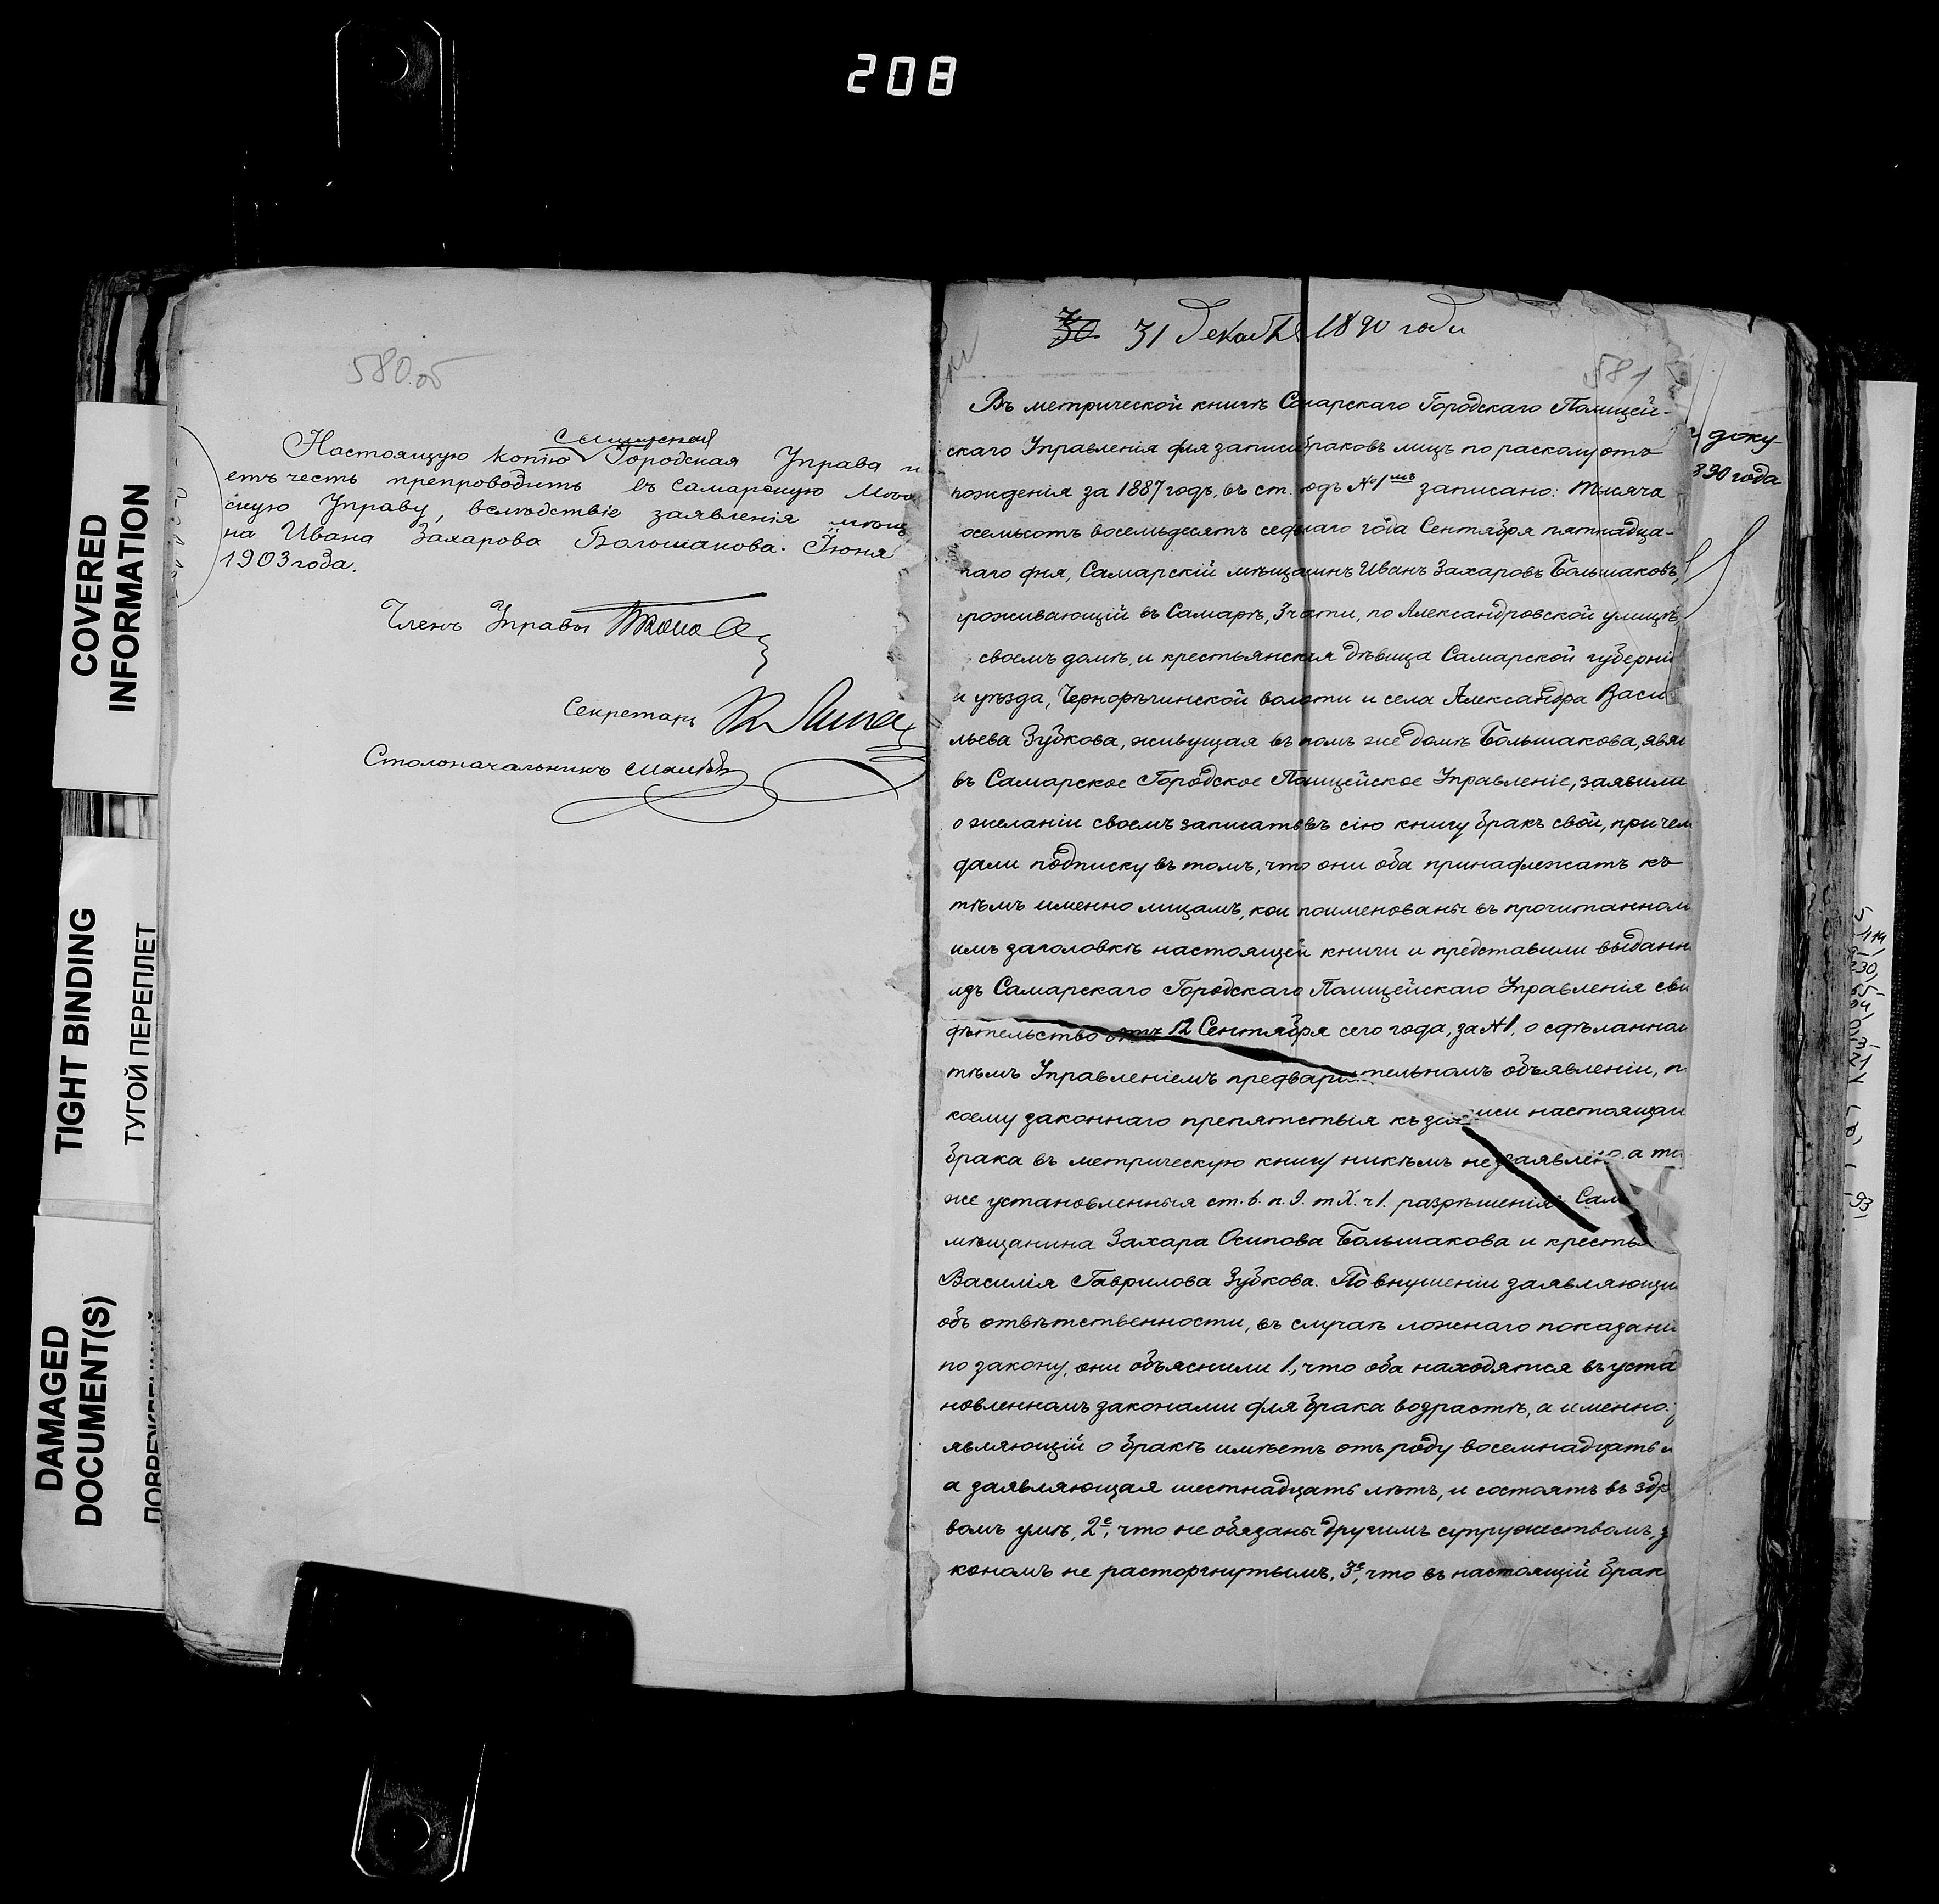 208
COVERED
INFORMATION
TIGHT BINDING
ТУГОЙ ПЕРЕПЛЕТ
DAMAGED
DOCUMENT(S)
580 об
Самарская
Настоящую копію Городская Управа и
етъ честь препроводить въ Самарскую
скую Управу, вслѣдствіе заявленія мѣщ
на Ивана Захарова Большакова. Іюня
1903 года.
Членъ Управы
Секретарь
Столоначальникъ
30 31 Декаб 1890 года
581
Въ метрической книгѣ Самарскаго Городскаго Полицей-
скаго Управленія для записи браковъ лицъ по расколу отъ
рожденія за 1887 годъ, въ ст. подъ №1мъ записано: Тысяча
осемьсотъ восемьдесятъ седьмаго года Сентября пятнадца-
таго дня, Самарскій мѣщанинъ Иванъ Захаровъ Большаковъ,
роживающій въ Самарѣ, 3 части, по Александровской улицѣ,
своемъ домѣ, и крестьянская дѣвица Самарской губерніи
и уѣзда, Чернорѣчинской волости и села Александра Васи
льева Зубкова, живущая въ томъ же домѣ Большакова, явя
въ Самарское Городское Полицейское Управленіе, заявили
о желаніи своемъ записать въ сію книгу бракъ свой, при чем
дали подписку въ томъ, что они оба принадлежатъ къ
тѣмъ именно лицамъ, кои поименованы въ прочитанном
имъ заголовкѣ настоящей книги и представили выданн
изъ Самарскаго Городскаго Полицейскаго Управленія сви
дѣтельство отъ 12 Сентября сего года, за №1, о сдѣланном
тѣмъ Управленіемъ предварительномъ объявленіи, п
коему законнаго препятствія къ записи настоящаг
брака въ метрическую книгу никѣмъ не заявлено, а та
же установленныя ст. 6. п. 9. т. X. ч 1. разрѣшенія Сам
мѣщанина Захара Осипова Большакова и крестья
Василія Гаврилова Зубкова. По внушеніи заявляющи
объ отвѣтственности, въ случаѣ ложнаго показані
по закону, они объяснили 1, что оба находятся въ уста
новленномъ законами для брака возрастѣ, а именно:
являющій о бракѣ имѣетъ отъ роду восемнадцать л
а заявляющая шестнадцать лѣтъ, и состоятъ въ здр
вомъ умѣ, 2е, что не обязаны другимъ супружествомъ, з
кономъ не расторгнутымъ, 3е, что въ настоящій брак
доку-
890 года